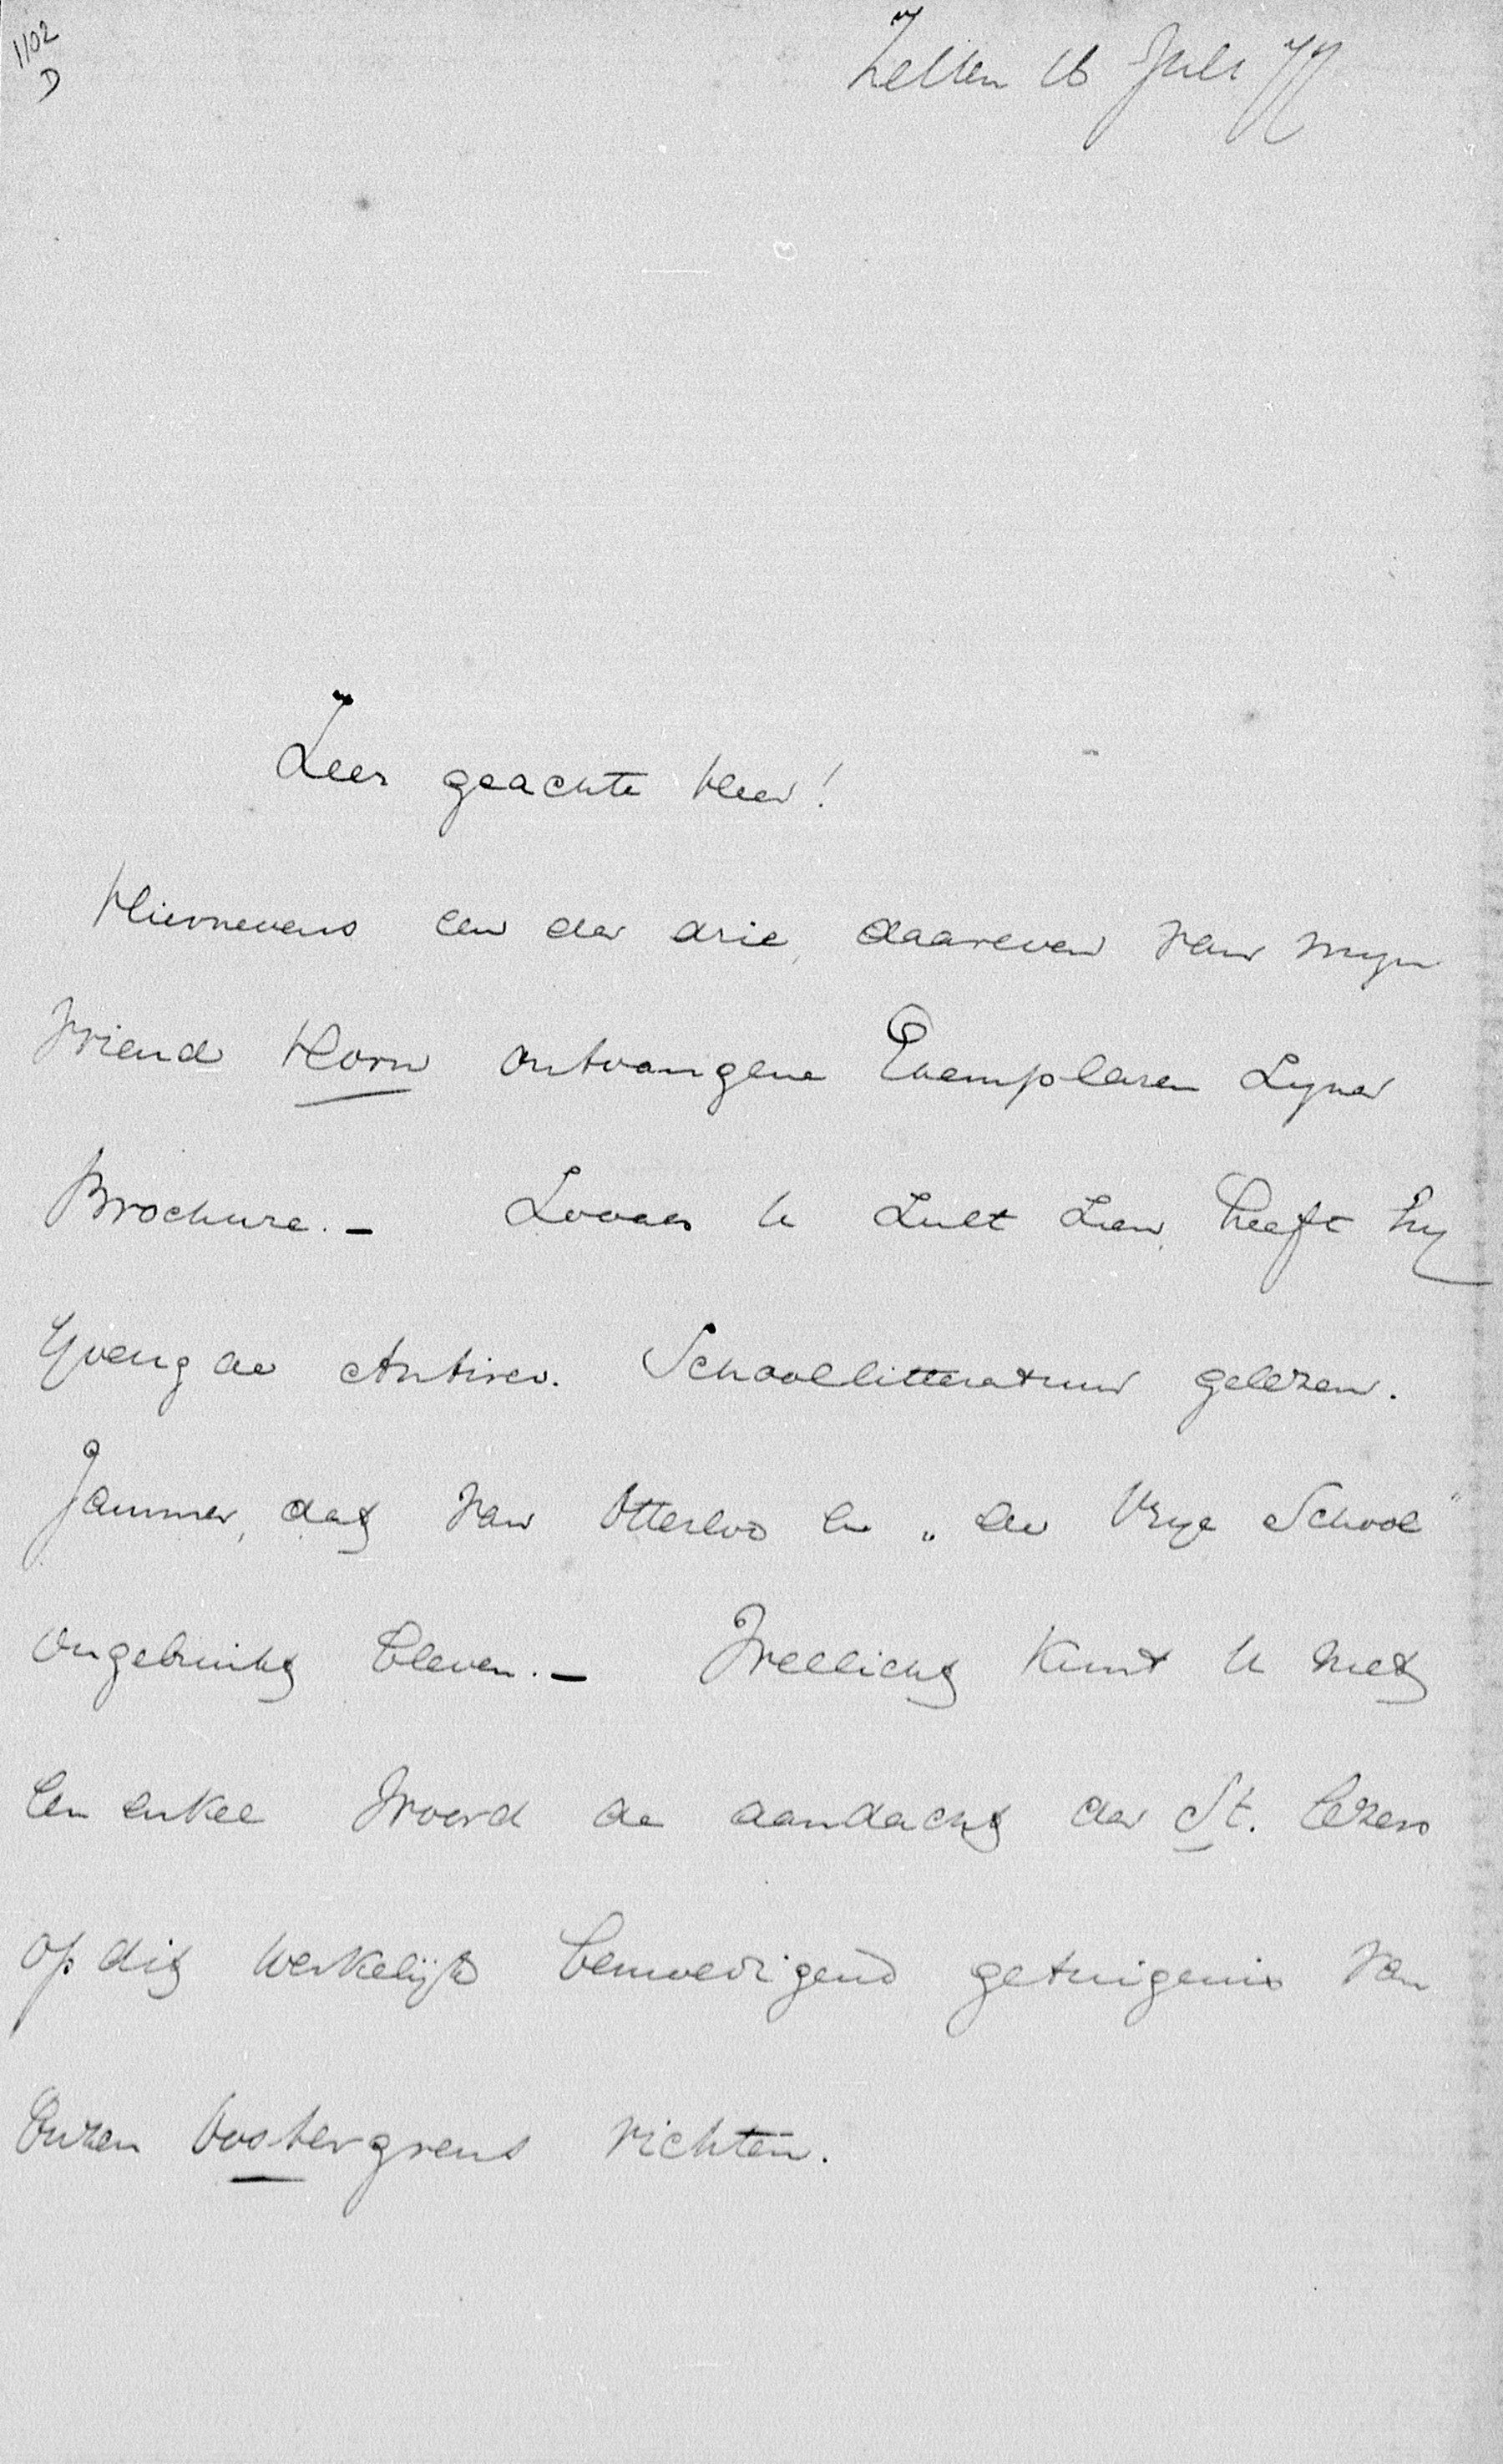 1102
D
Zetten 16 Juli 77
Zeer geachte Heer!
Hiernevens een der drie, daareven van myn
vriend Horn ontvangene Exemplaren zyner
Brochure. – Zooals U zult zien, heeft hy
yverig de Antirev. Schoollitteratuur gelezen.
Jammer, dat van Otterloo en „de Vrye School"
ongebruikt bleven. – Wellicht kunt U met
een enkel woord de aandacht der St. lezers
op dit werkelijk bemoedigend getuigenis van
onzen Oostergrens richten.